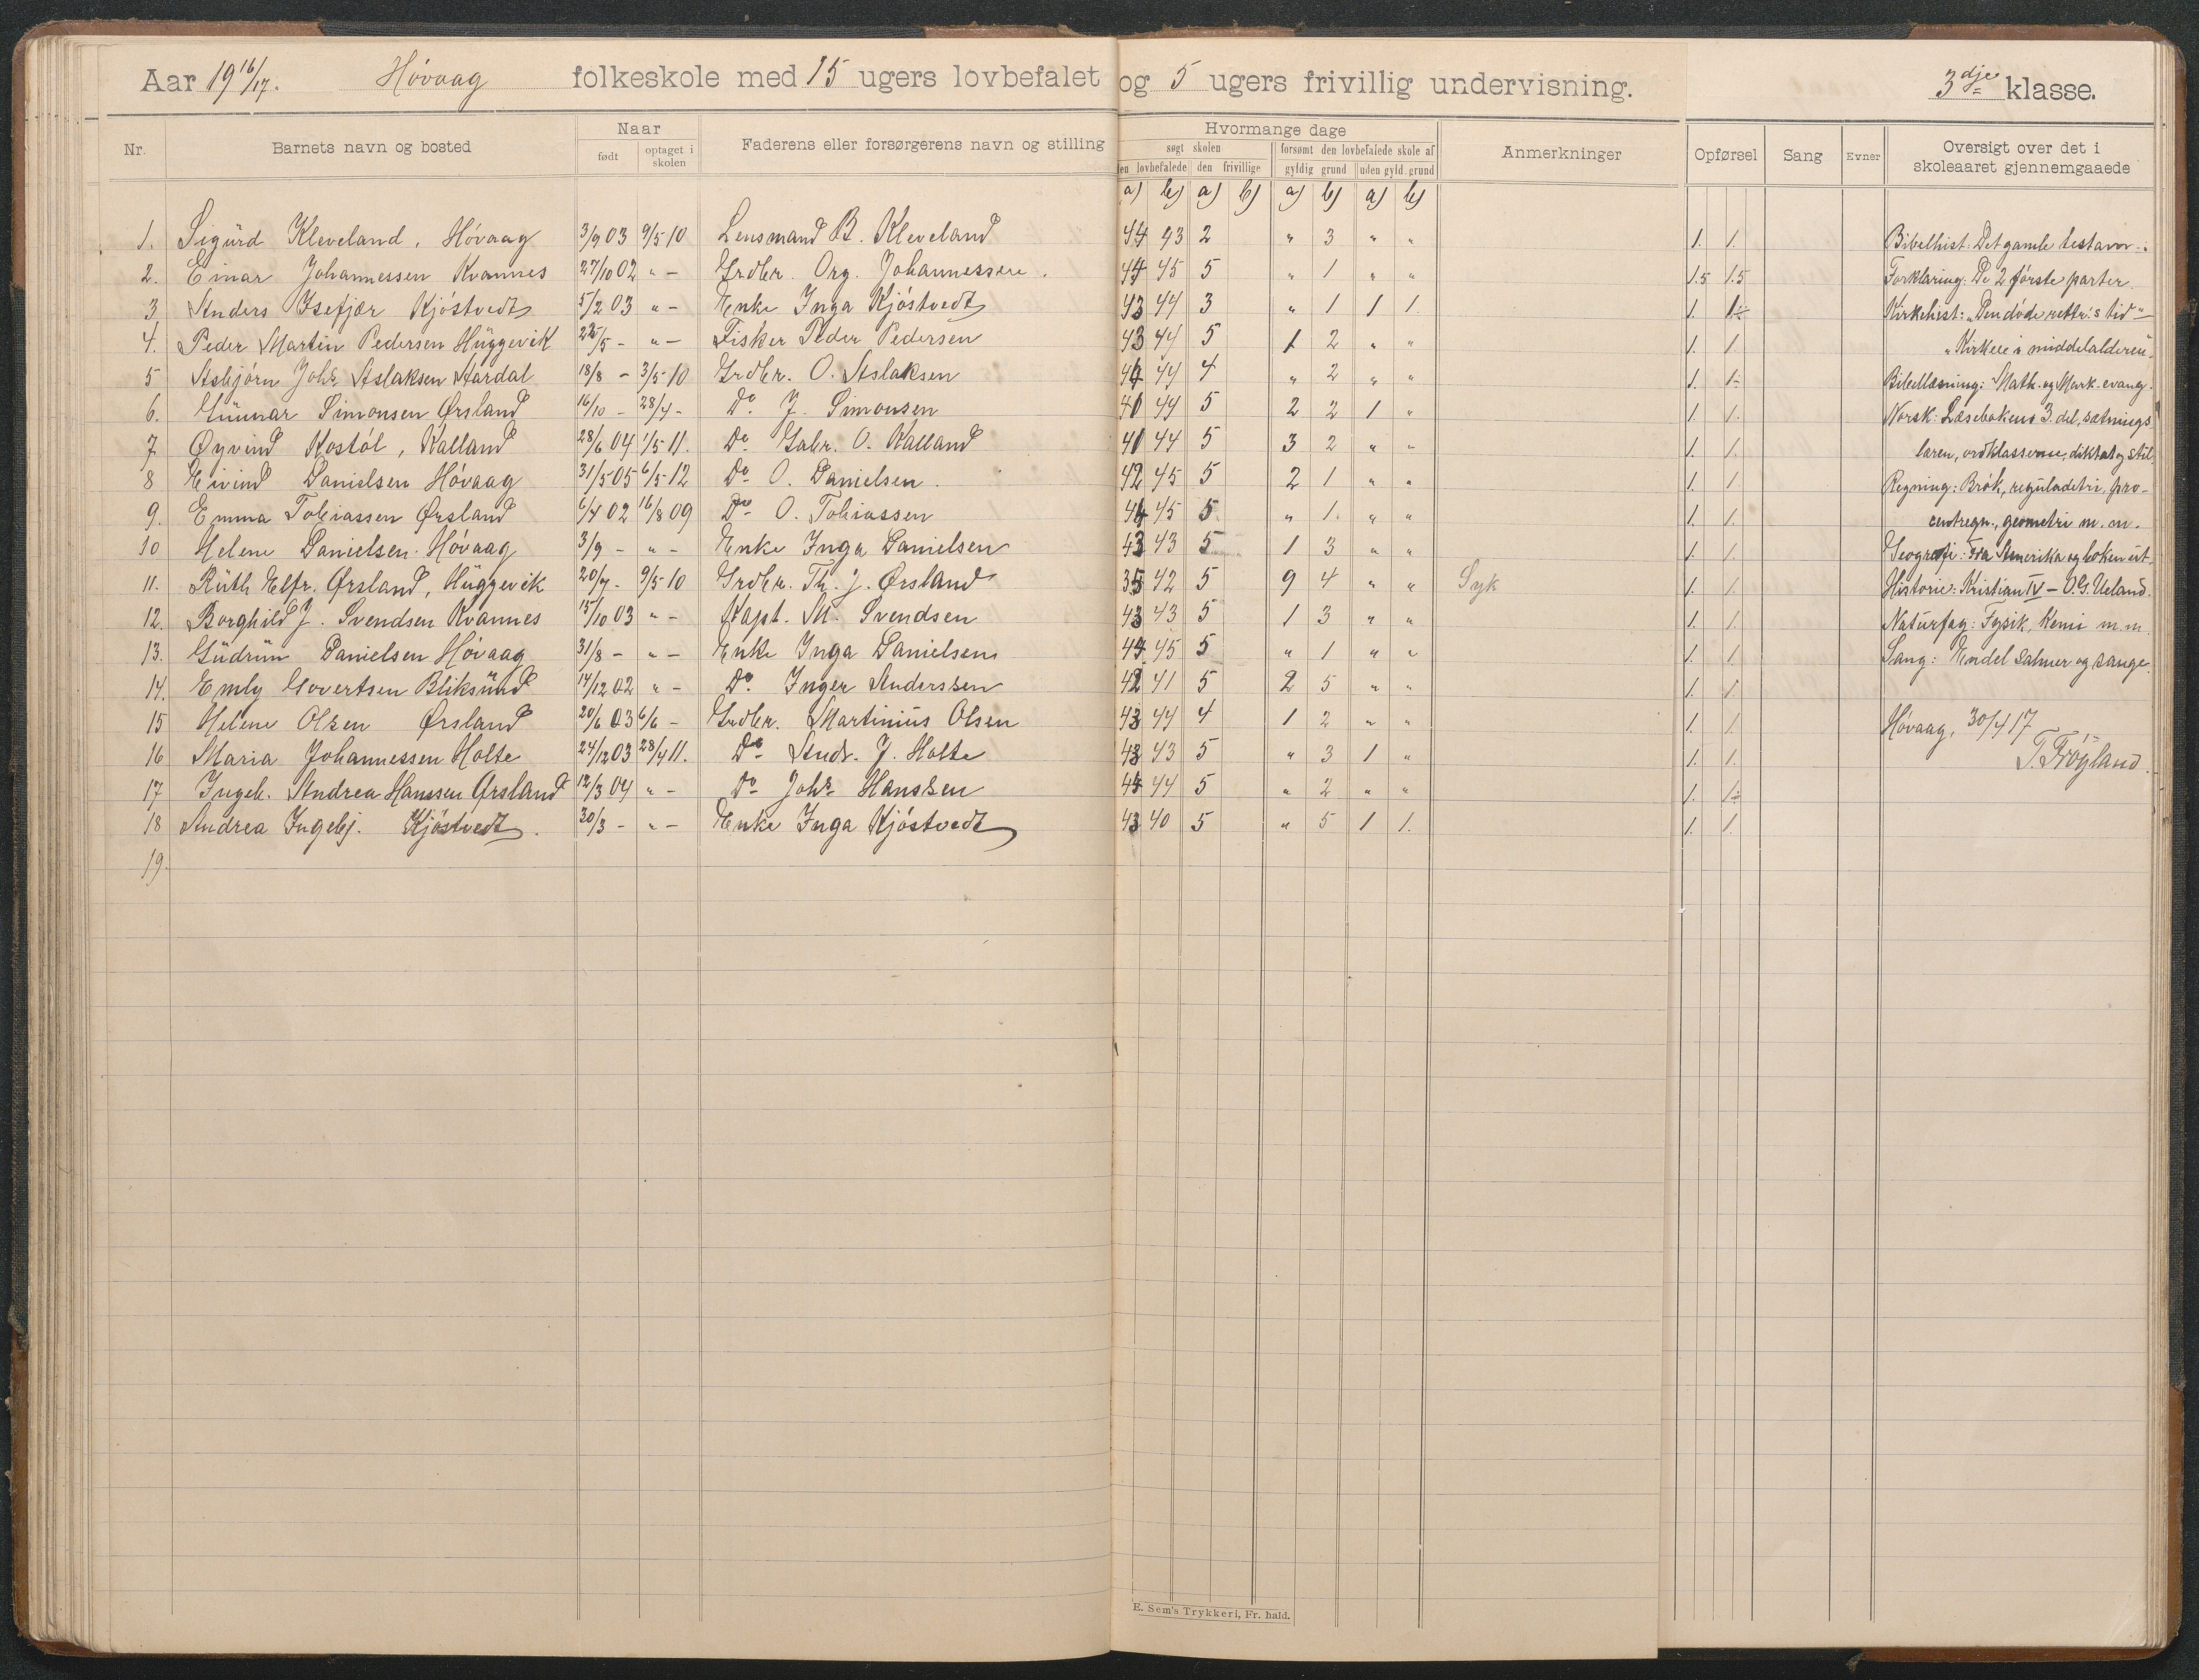 Aar 19 16/17. Høvaag folkeskole med 15 ugers lovbefalet og 5 ugers frivillig undervisning. 3dje klasse.
Nr. Barnets navn og bosted Naar født optaget i skolen Faderens eller forsørgerens navn og stilling Hvormange dage søgt skolen den lovbefalede den frivillige forsømt den lovbefalede skole af gyldig grund uden gyld. grund Anmerkninger Opførsel Sang Evner Oversigt over det i skoleaaret gjennemgaaede
a) b) a) b) a) b) a) b)
1. Sigurd Kleveland, Høvaag 3/9 03 9/5 10 Lensmand B. Kleveland 44 43 2 " 3 " " 1. 1. Bibelhist: Det gamle testam-
2. Einar Johannessen Kvannes 27/10 02 " - Grdbr. Org. Johannessen. 44 45 5 " 1 " " 1.5 1.5 Forklaring: De 2 første parter.
3 Anders Isefjær Kjøstvedt 5/2 03 " - Enke Inga Kjøstvedt 43 44 3 " 1 1 1. 1. 1 Kirkehist: "Den døde rettr.s tid"
4. Peder Martin Pedersen Huggevik 22/5 - " - Fisker Peder Pedersen 43 44 5 1 2 " " 1. 1. "Kirken i middelalderen"
5 Asbjørn Johs Aslaksen Aardal 18/8 - 3/5 10 Grdbr. O. Aslaksen 44 44 4 " 2 " " 1. 1. Bibellæsning: Math. og Mark. evang.
6. Gunnar Simonsen Ørsland 16/10 - 28/4 - Do J. Simonsen 40 44 5 2 2 1 " 1. 1. Norsk: Læsebokens 3. del, sætnings
7 Øyvind Kostøl, Kalland 28/6 04 1/5 11. Do Gabr. O. Kalland 40 44 5 3 2 " " 1. 1. læren, ordklasserne, diktat og stil.
8 Eivind Danielsen Høvaag 31/5 05 6/5 12 Do O. Danielsen. 42 45 5 2 1 " " 1. 1. Regning: Brøk, reguladetri, pro-
9. Emma Tobiassen Ørsland 6/4 02 16/8 09 Do O. Tobiassen 44 45 5 " 1. " " 1. 1. centregn., geometri m. m.
10 Helene Danielsen Høvaag 3/9 - " - Enke Inga Danielsen 43 43 5 1 3 " " 1. 1. Geografi: Fra Amerika og boken ut.
11. Ruth Elfr. Ørsland, Huggevik 20/7 - 9/5 10 Grdbr. Th. J. Ørsland 35 42 5 9 4 " " Syk 1. 1. Historie: Kristian IV - O.G. Ueland.
12. Borghild J. Svendsen Kvannes 15/10 03 " - Kapt. M. Svendsen 43 43 5 1 3 " " 1. 1. Naturfag: Fysik, Kemi m. m.
13. Gudrun Danielsen Høvaag 31/8 - " - Enke Inga Danielsen 44 45 5 " 1 " " 1. 1. Sang: Endel salmer og sange.
14. Emly Govertsen Bliksund 14/12 02 " - Do Inger Anderssen 42 41 5 2 5 " " 1. 1.
15 Helene Olsen Ørsland 20/6 03 6/6 - Grdbr. Martinius Olsen 43 44 4 1 2 " " 1. 1. Høvaag, 30/4 17
16 Maria Johannessen Holte 24/12 03 28/4 11. Do Andr. J. Holte 43 43 5 " 3 1 " 1. 1. T. Frøyland.
17 Ingeb. Andrea Hanssen Ørsland 12/3 04 " - Do Johs Hanssen 44 44 5 " 2 " " 1. 1.
18 Andrea Ingebj. Kjøstvedt. 30/3 - " - Enke Inga Kjøstvedt 43 40 5 " 5 1 1. 1. 1.
19.
E. Sem's Trykkeri, Fr. hald.